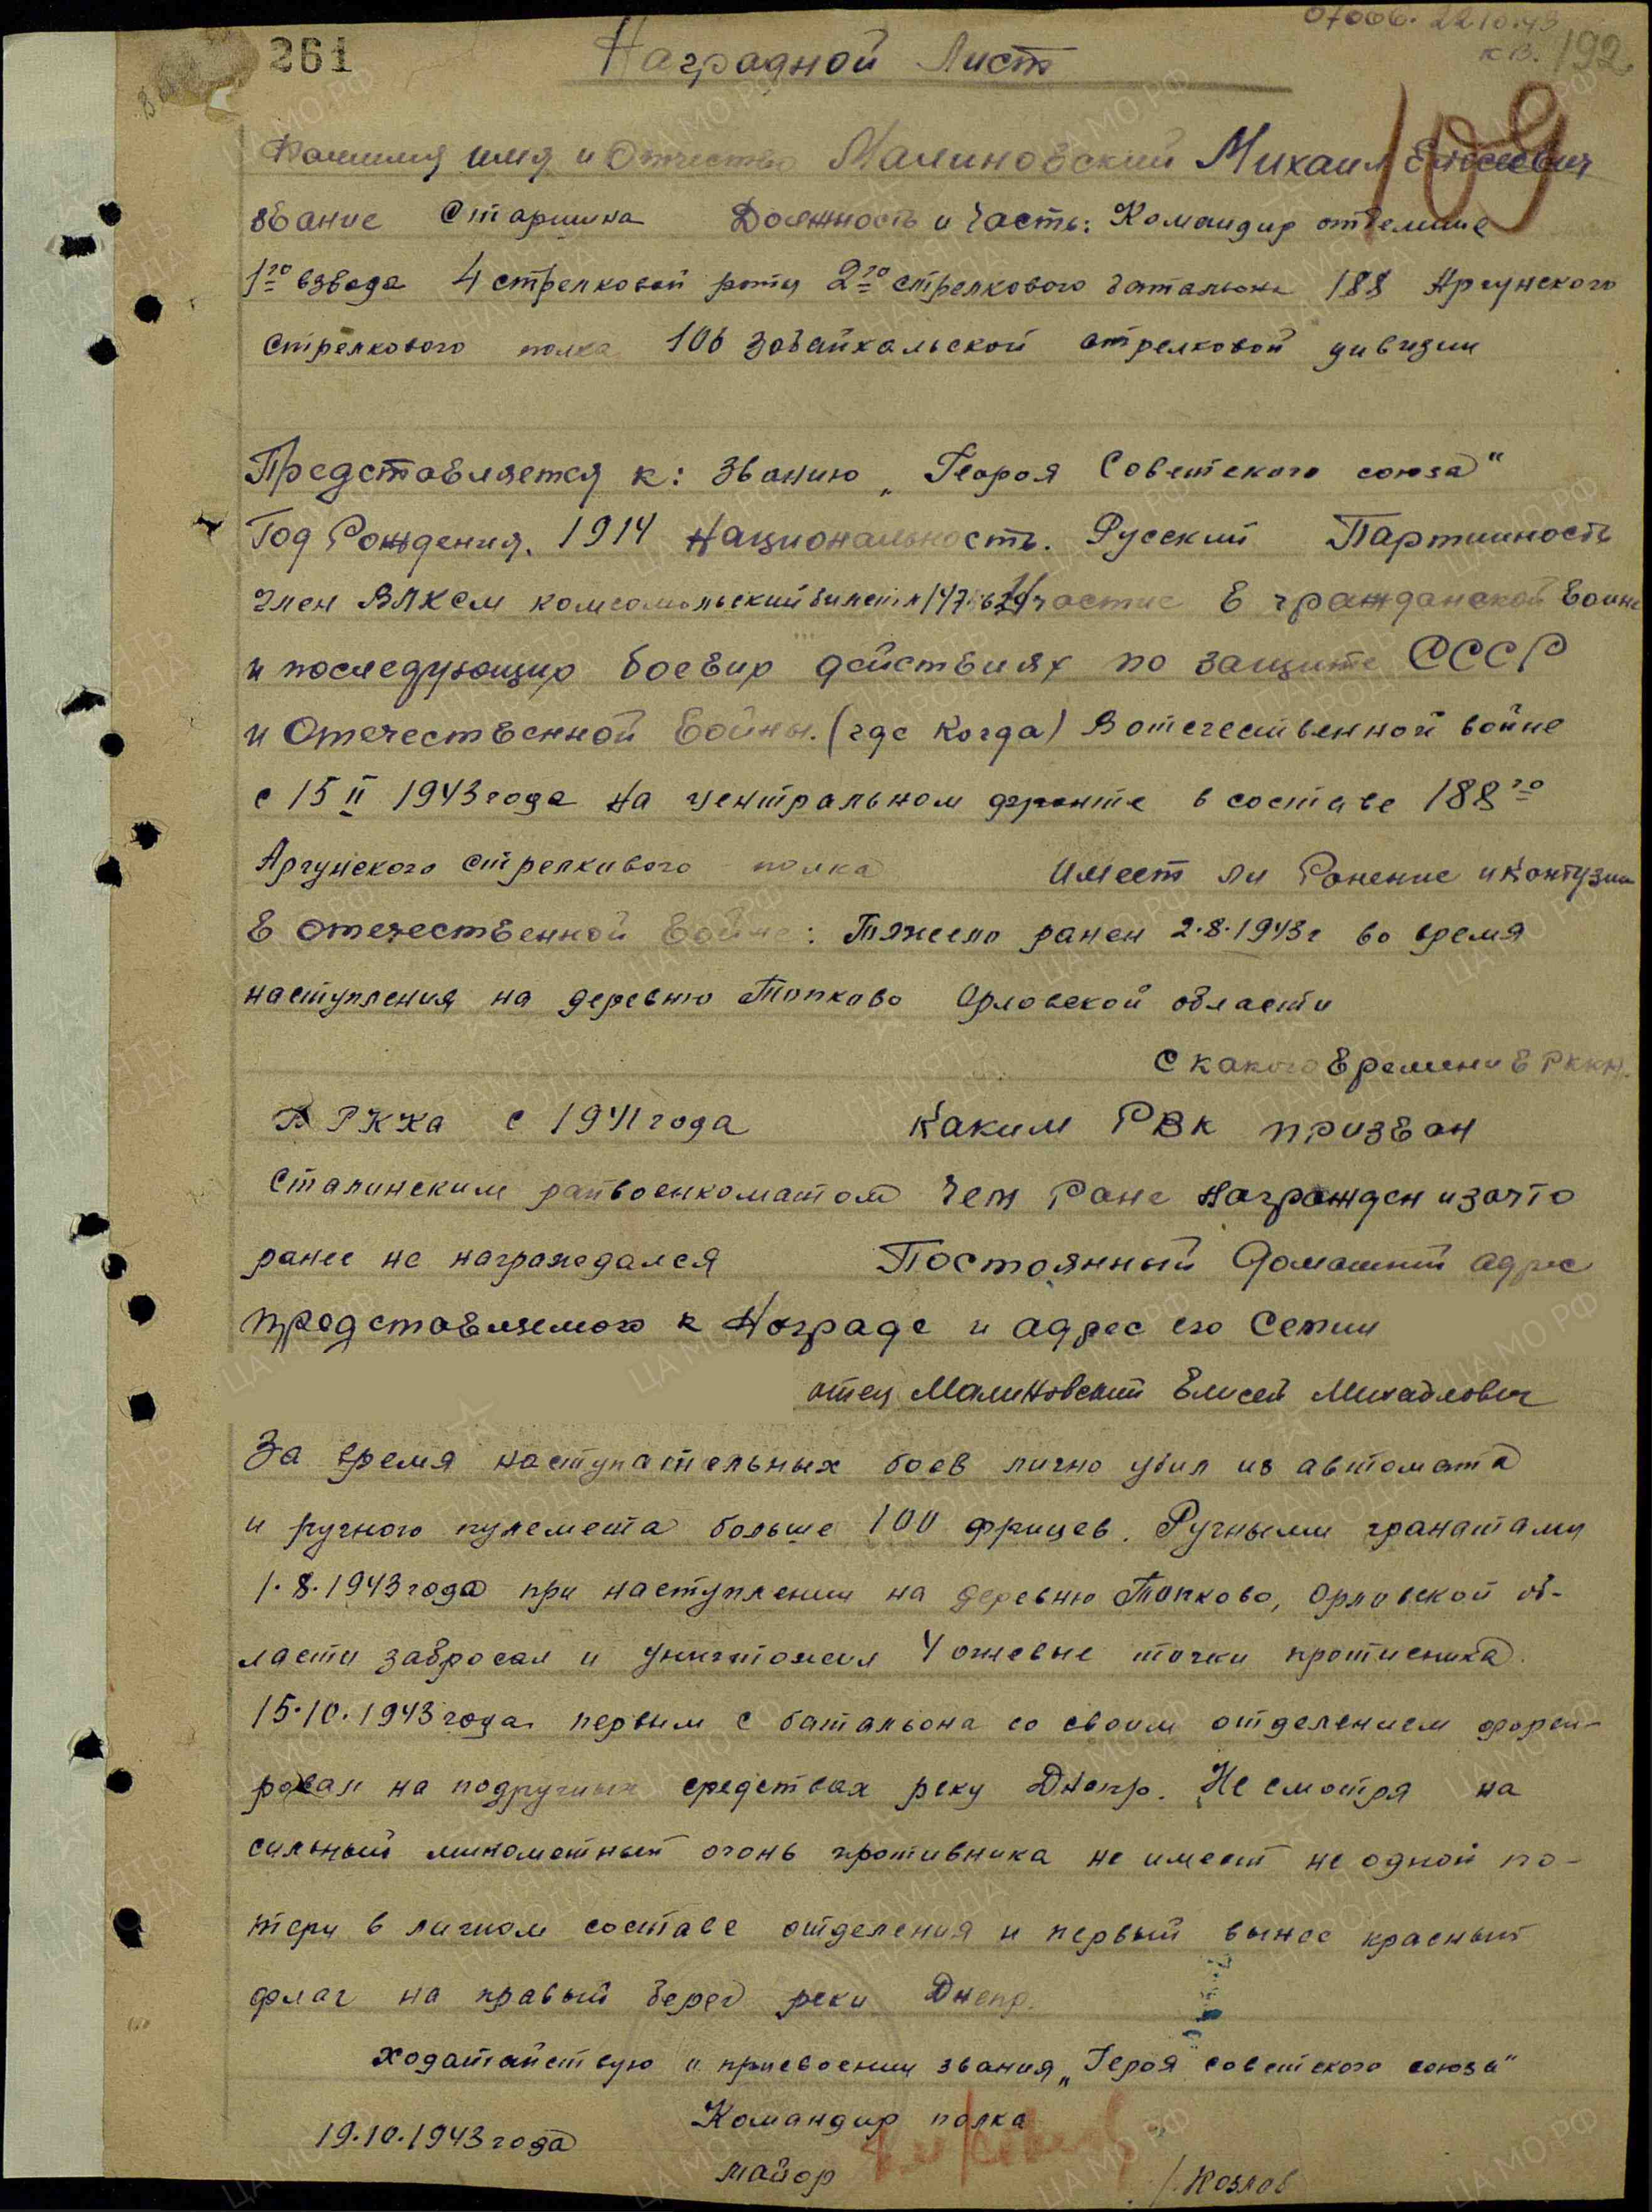 07006. 22.10.43
кв. 192
261
Наградной Лист
109
Фамилия имя и Отчество Малиновский Михаил Елисеевич
звание Старшина Должность и Часть: Командир отделение
1го взвода 4 стрелковой роты 2го стрелкового баталиона 188 Аргунского
стрелкового полка 106 Забайкальской стрелковой дивизии
Представляется к: званию „Героя Советского союза"
Год Рождения. 1914 Национальность. Русский Партийность
член ВЛКСМ комсомольский билет участие в гражданской войне
и последующир боевир действиях по защите СССР
и Отечественной войны. (где когда) В отечественной войне
с 15 II 1943 года на центральном фронте в составе 188го
Аргунского стрелкового полка Имеет ли Ранение и Контузии
в Отечественной войне: Тяжело ранен 2.8.1943 г во время
наступления на деревню Топково Орловской области
С какого времени в РККА.
В РККА с 1941 года Каким РВК призван
Сталинским райвоенкоматом Чем Ране Награжден и за что
ранее не награждался Постоянный Домашний адрес
представляемого к Награде и адрес его Семии
отец Малиновский Елисей Михайлович
За время наступательных боев лично убил из автомата
и ручного пулемета больше 100 фрицев. Ручными гранатами
1.8.1943 года при наступлении на деревню Топково, Орловской об-
ласти забросал и уничтожил 4 огневые точки противника.
15.10.1943 года первым с батальона со своим отделением форси-
ровал на подручных средствах реку Днепр. Не смотря на
сильный минометный огонь противника не имеет не одной по-
тери в личном составе отделения и первый вынес красный
флаг на правый берег реки Днепр.
Ходатайствую о присвоении звания „Героя советского союза"
Командир полка
19.10.1943 года
майор /Козлов